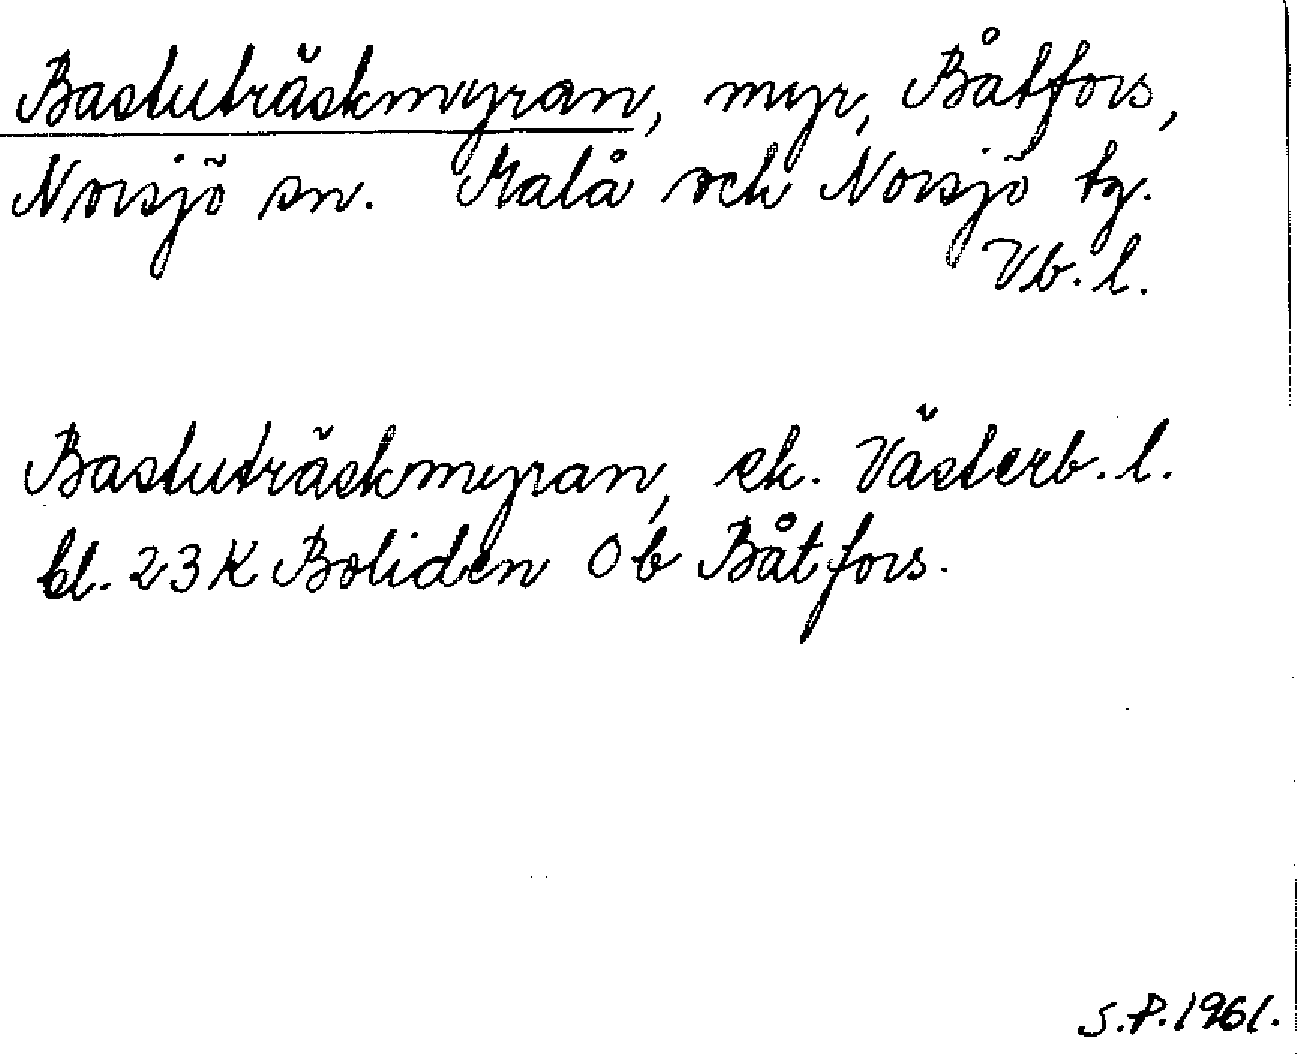 Bastuträskmyran, myr, Båtfors,
Norsjö sn. Malå och Norsjö tg.
Vb. l.
Bastuträskmyran, ek. Västerb. l.
bl. 23 K Boliden Ob Båtfors.
S.P. 1961.